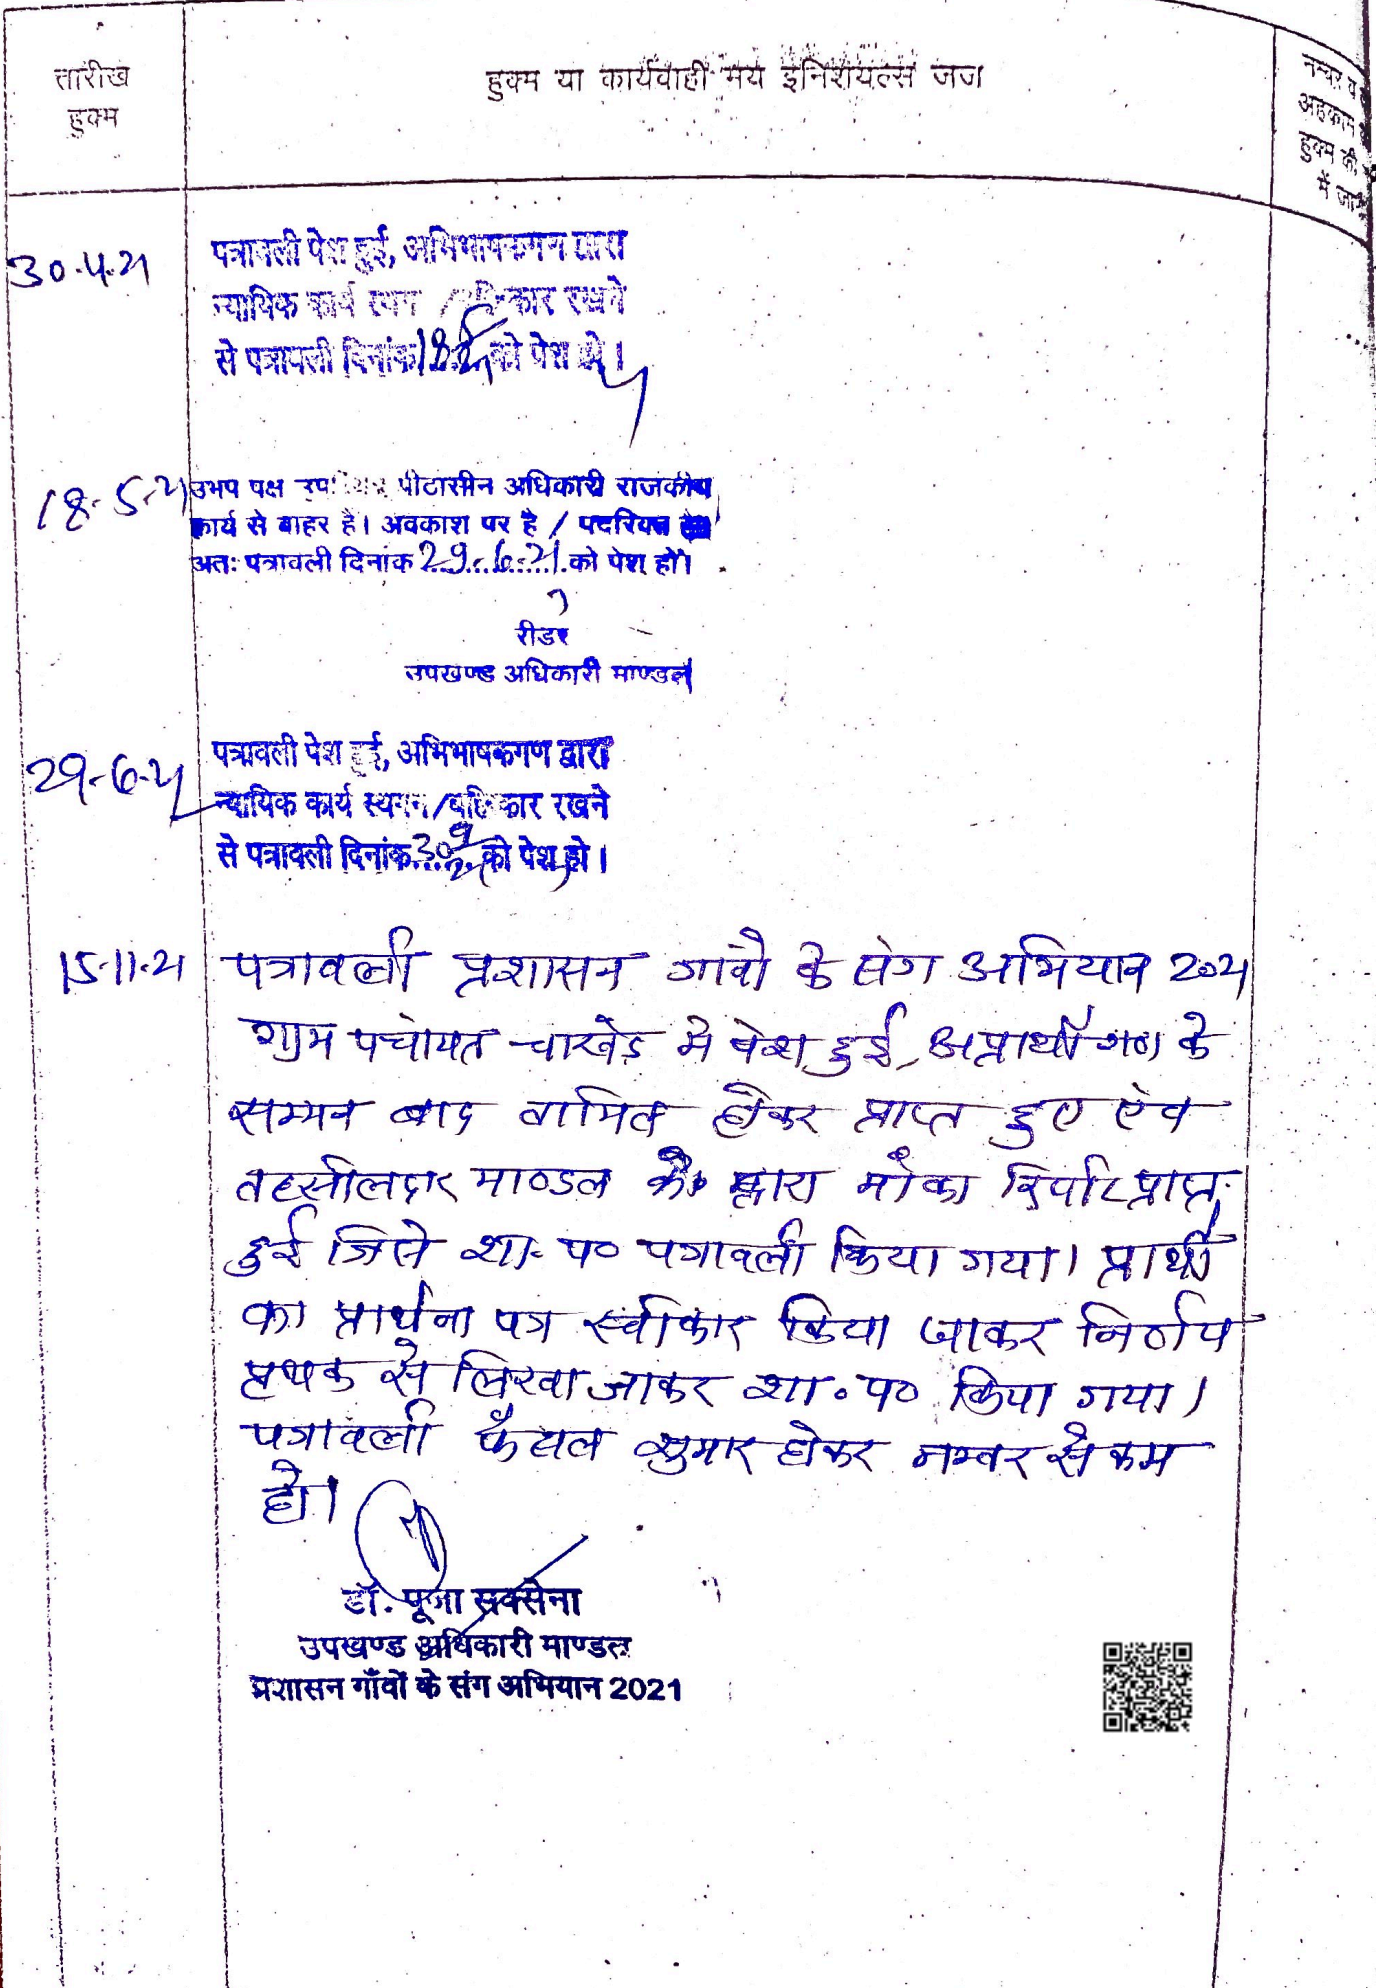 तारीख
हुक्म
हुक्म या कार्यवाही मय इनिशियल्स जज
नम्बर व
अहकाम
हुक्म की,
में जा
30.4.21
पत्रावली पेश हुई, अभिभाषकगण द्वारा
न्यायिक कार्य स्थगन / बहिष्कार रखने
से पत्रावली दिनांक 18/5/21 को पेश हो।
18-5-21
उभय पक्ष उपस्थित पीठासीन अधिकारी राजकीय
कार्य से बाहर है। अवकाश पर है / पदरिक्त है
अतः पत्रावली दिनांक 29.6.21 को पेश हों।
रीडर
उपखण्ड अधिकारी माण्डल
29-6-21
पत्रावली पेश हुई, अभिभाषकगण द्वारा
न्यायिक कार्य स्थगन/बहिष्कार रखने
से पत्रावली दिनांक 30/9/21 को पेश हो।
15.11.21
पत्रावली प्रशासन गावों के संग अभियान 2021
ग्राम पंचायत चाखेड़ मे पेश हुई, अप्रार्थीगण के
सम्मन बाद तामिल होकर प्राप्त हुए एंव
तहसीलदार माण्डल के द्वारा मौका रिर्पोट प्राप्त
हुई जिसे शा. प० पत्रावली किया गया। प्रार्थी
का प्रार्थना पत्र स्वीकार किया जाकर निर्णय
प्रथक से लिखा जाकर शा. प० किया गया।
पत्रावली फैसल सुमार होकर नम्बर से कम
हो।
डॉ. पूजा सक्सेना
उपखण्ड अधिकारी माण्डल
प्रशासन गाँवों के संग अभियान 2021